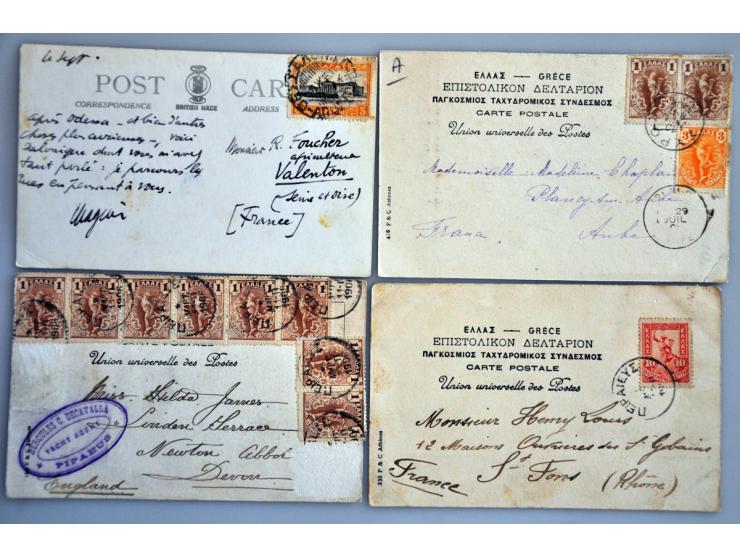 le sept
POST CARD
CORRESPONDENCE
BRITISH MADE
ADDRESS
après Odessa - et bien d'autres
choses plus curieuses, voici
Salonique dont vous m'avez
tant parlé : je parcours les
rues en pensant à vous.
Monsieur R. Foucher
agriculteur
Valenton
(Seine et Oise)
[France]
5
A
ΕΛΛΑΣ — GRÈCE
ΕΠΙΣΤΟΛΙΚΟΝ ΔΕΛΤΑΡΙΟΝ
ΠΑΓΚΟΣΜΙΟΣ ΤΑΧΥΔΡΟΜΙΚΟΣ ΣΥΝΔΕΣΜΟΣ
CARTE POSTALE
Union universelle des Postes
Mademoiselle Madeleine
Plancy sur Aube
Aube
416 P & C Athènes
1 ΕΛΛΑΣ 1
1 ΕΛΛΑΣ 1
3
29
JUIL
1 ΕΛΛΑΣ 1
CARTE POSTALE
Union universelle des Postes
Miss Hilda James
Linden Terrace
Newton Abbot
Devon
England
HERCULES C. DECAVALLA
YACHT AGENT
PIRAEUS
ΕΛΛΑΣ — GRÈCE
ΕΠΙΣΤΟΛΙΚΟΝ ΔΕΛΤΑΡΙΟΝ
ΠΑΓΚΟΣΜΙΟΣ ΤΑΧΥΔΡΟΜΙΚΟΣ ΣΥΝΔΕΣΜΟΣ
CARTE POSTALE
Union universelle des Postes
Monsieur Henry Louis
12 Maisons Ouvrières des St Gobains
St Fons
France (Rhône)
P & C Athènes
ΕΛΛΑΣ
10 10
ΠΕΙΡΑΙΕΥΣ